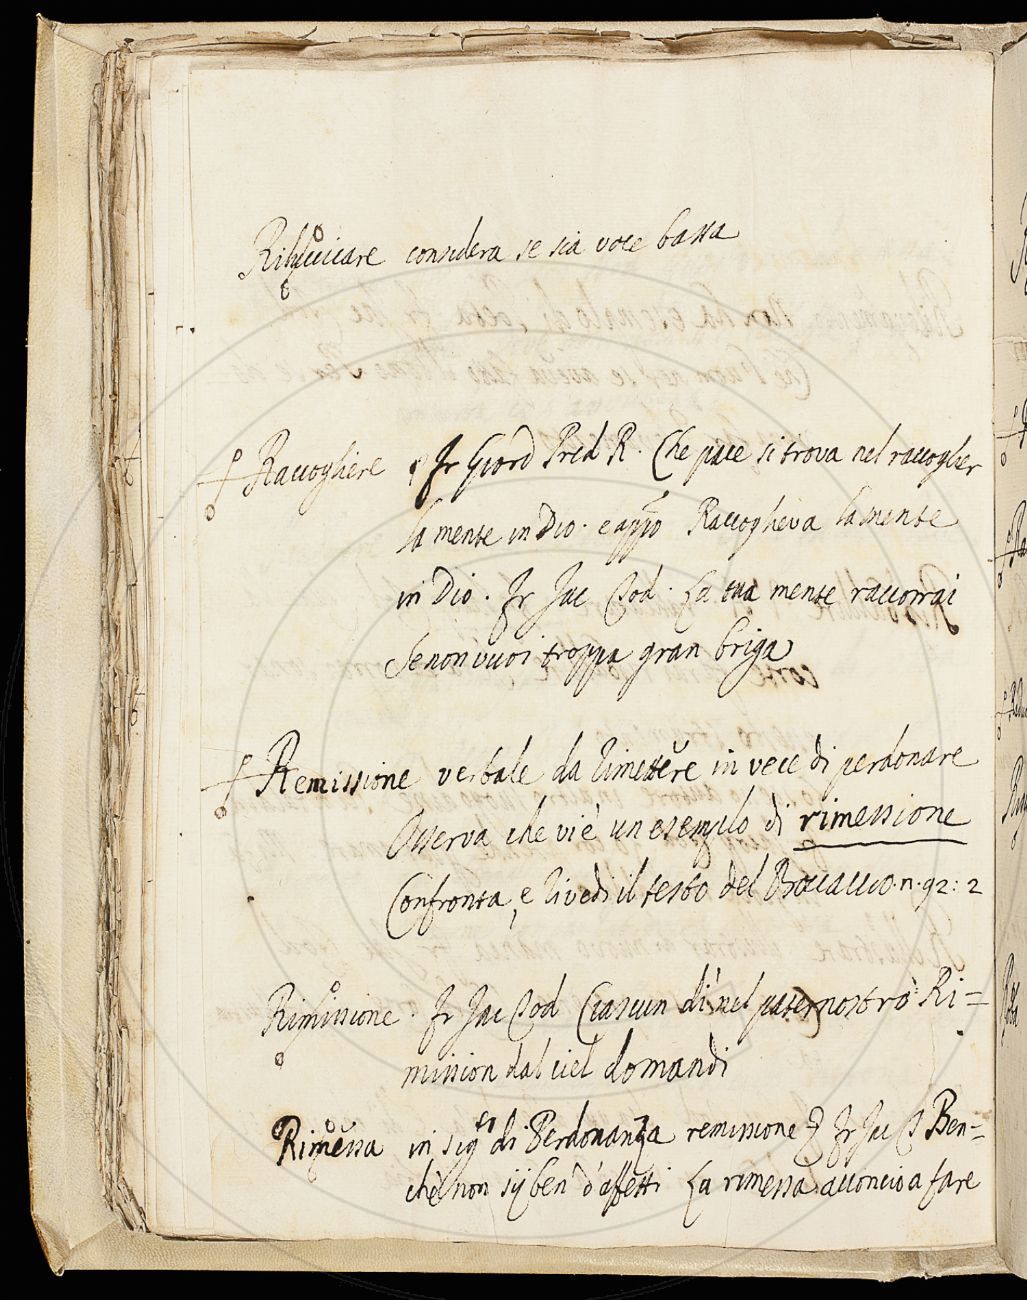 considera se sia voce bassa
Raccogliere Fr Giord Pred R. Che pace si trova nel raccoglier
la mente in Dio. e app̃o Raccogheva la mente
in Dio. Fr Jac Tod. La tua mente raccorrai
Se non vuoi troppa gran briga
Remissione verbale da rimettere in vece di perdonare
Osserva che vi è un esemplo di rimessione
Confronta, e rivedi il testo del Boccaccio. n. 92: 2
Rimissione. Fr Jac Tod Ciascun dì nel paternostro Ri=
mission dal ciel domandi
Rimessa in sig.to di Perdonanza remissione Fr Jac T Ben=
chè non sij ben d'affetti La rimessa acconcio a fare